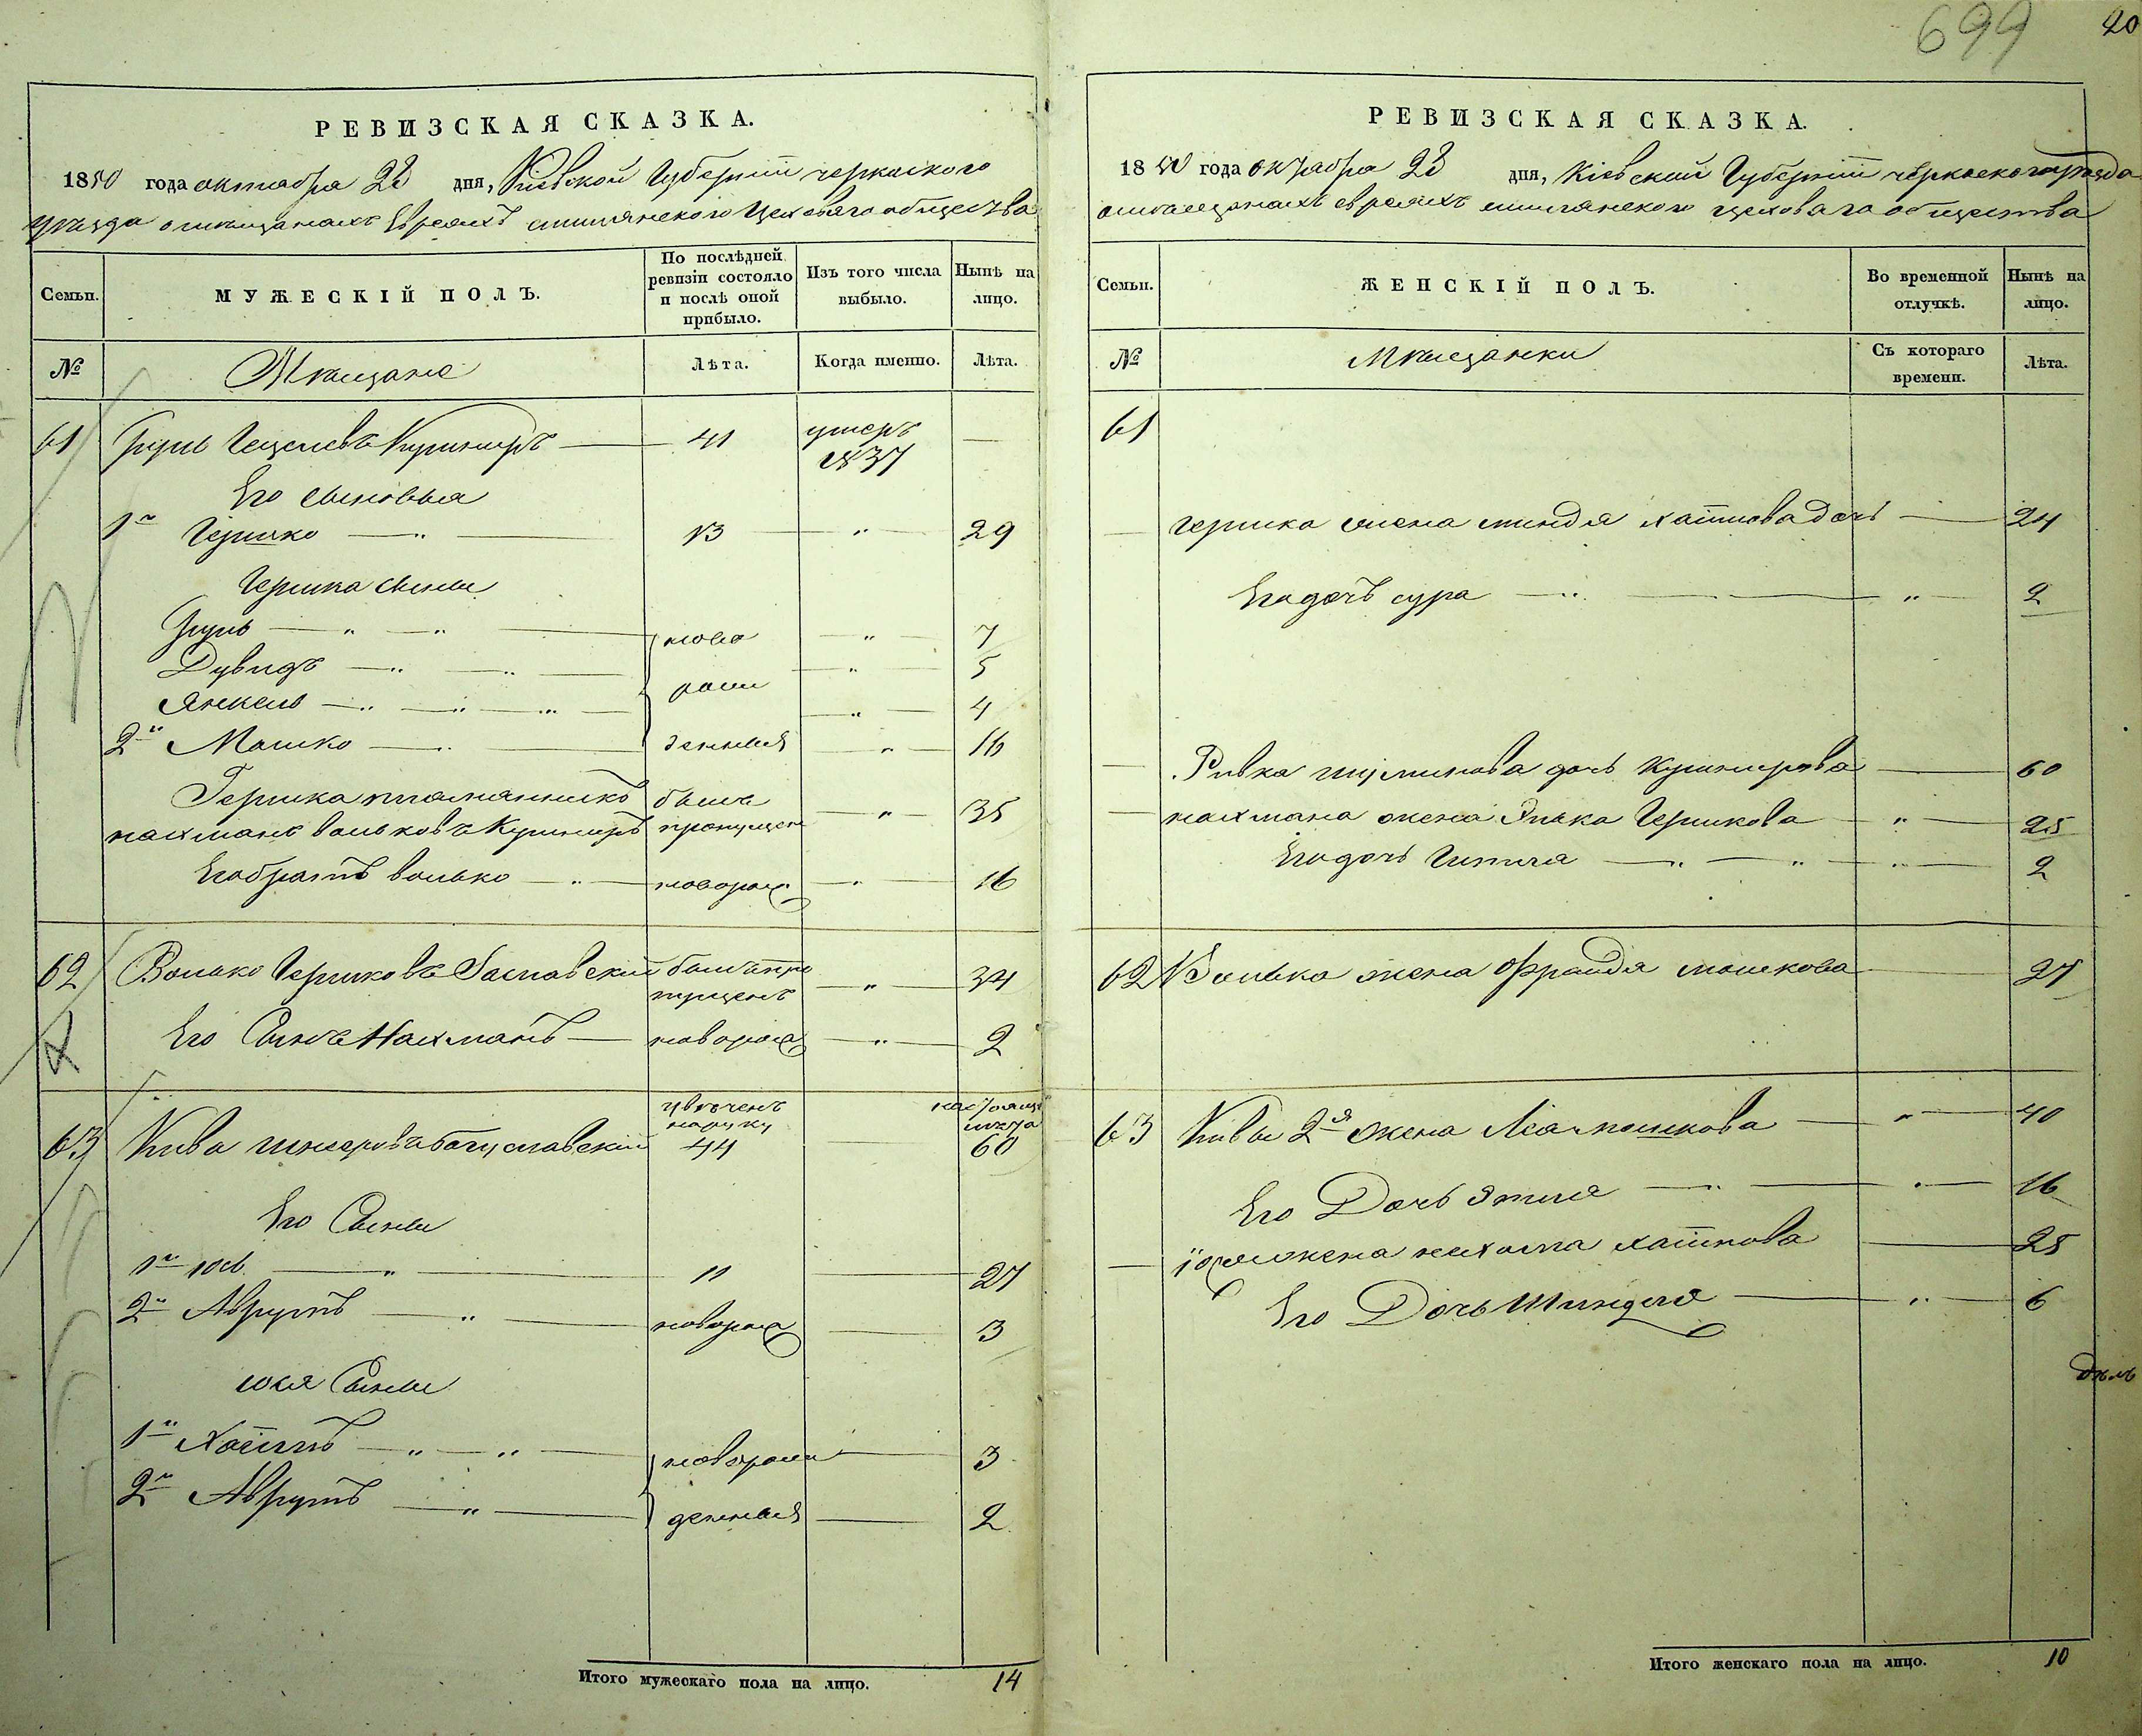 699 20
РЕВИЗСКАЯ СКАЗКА.
1850 года октября 23 дня, Кіевской Губерніи черкаского
уѣзда о мѣщанахъ Евреяхъ смилянского Цеховаго общества
Семьи.
МУЖЕСКІЙ ПОЛЪ.
По послѣдней ревизіи состояло и послѣ оной прибыло.
Изъ того числа выбыло.
Нынѣ на лицо.
№
Мѣщане
Лѣта.
Когда именно.
Лѣта.
61 Гецелевъ Кушниръ — 41 умеръ —
37
Его сыновья
1й Гершко — " — 13 — " — 29
Гершка сыны
— " — " — ново — " — 7
Дувидъ — " — " — — " — 5
Янкель — " — " — " — рож — " — 4
2й Мошко — " — денныя — " — 16
Гершка племянникъ былъ
нахманъ вольковъ Кушниръ пропущен — " — 35
Его братъ волько — " — новорож — " — 16
62 Волько Гершковъ Заславскій былъ про
пущенъ — " — 34
Его Сынъ Нахманъ — новорож — " — 2
63 Кива богуславскій 44 60
Его Сыны
1й юсь — " — 11 — 27
2й Аврумъ — " — новорож — 3
юся Сыны
1й Хаимъ — " — " — новорож — 3
2й Аврумъ — " — денныя — 2
Итого мужескаго пола на лицо. 14
РЕВИЗСКАЯ СКАЗКА.
1850 года октября 23 дня, Кіевской Губерніи черкаского уѣзда
о мѣщанахъ евреяхъ смилянского цеховаго общества
Семьи.
ЖЕНСКІЙ ПОЛЪ.
Во временной отлучкѣ.
Нынѣ на лицо.
№
Мѣщанки
Съ котораго времени.
Лѣта.
61
— гершка жена миндя хаимова дочь — 24
Его дочь сура — " — " — 2
— Ривка дочь Кушнирова — 60
— нахмана жена Гершкова — " — 25
Его дочь Гитля — " — " — " — 2
62 Волька жена Фрейда мошкова — 27
63 Кивы 2я жена Лея мошкова — " — 40
Его Дочь Этля — " — " — 16
— юся жена нехама хаимова — 25
Его Дочь Шиндля — " — 6
Итого женскаго пола на лицо. 10